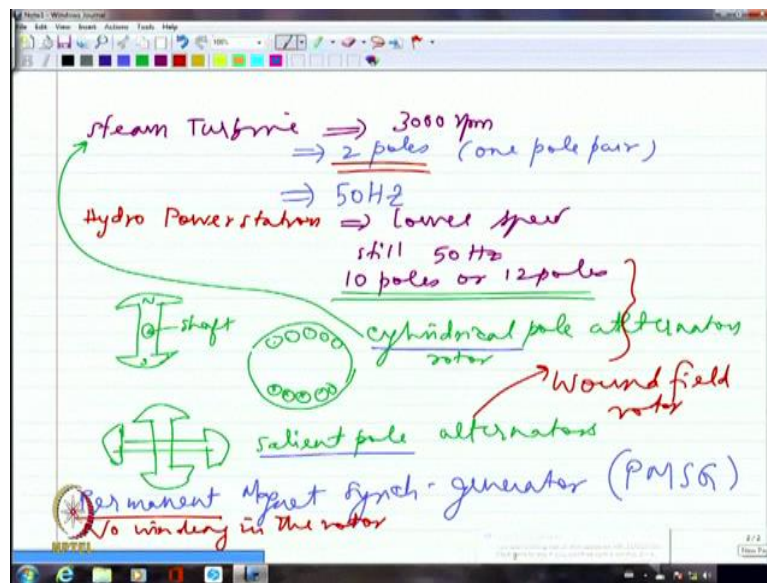 Note1 - Windows Journal
File Edit View Insert Actions Tools Help
100%
Steam Turbine ⇒ 3000 rpm
⇒ 2 poles (one pole pair)
⇒ 50HZ
Hydro Powerstations ⇒ lower speed
still 50 Hz
10 poles or 12 poles
N
shaft
cylindrical pole alternators
rotor
Wound field
rotor
salient pole alternators
Permanent Magnet Synch. generator (PMSG)
No winding in the rotor
NPTEL
2/2
New Pa